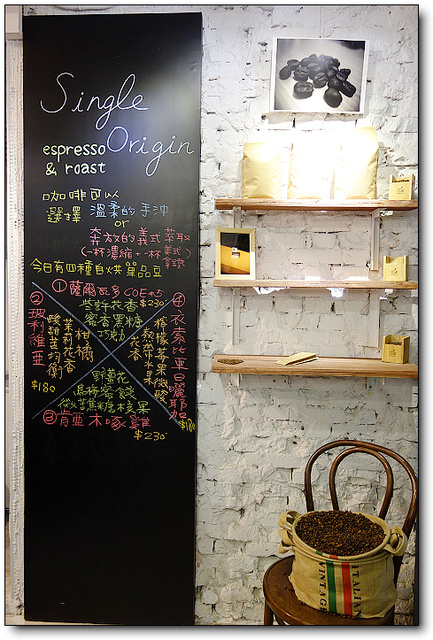 Single
Origin
espresso
& roast
咖啡可以
選擇 溫柔的 手沖
or
奔放的義式萃取
(一杯濃縮+一杯義式
今日有四種自烘單品豆
① 薩爾瓦多 COE#3
$230
紫軒花香
蜜香黑糖
巧克力
② 玻利維亞
茉莉花香
柑橘
酸甜苦均衡
$180
④ 衣索比亞日曬耶加
檸檬蘋果微酸
熱帶水果
花香
$180
野薑花
烏梅蜜餞
微苦焦糖核果
③ 肯亞 木啄雞
$230
ITALIAN
VINTAGE